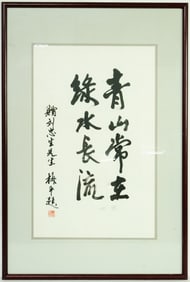 青山常在
綠水長流
贈刘忠生先生 梅平題